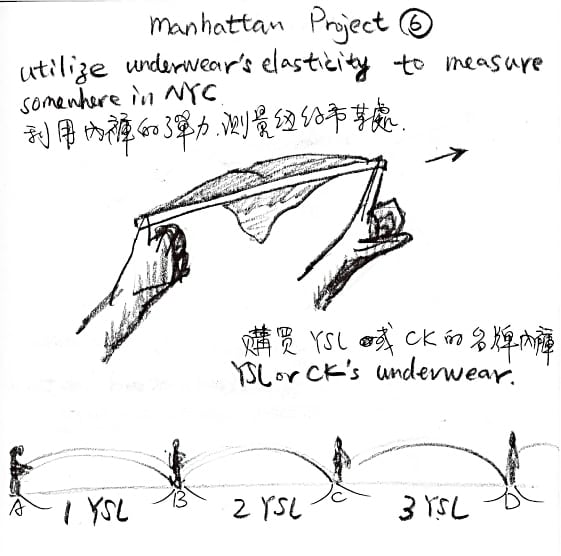 manhattan Project ⑥
utilize underwear's elasticity to measure
somewhere in NYC
利用內褲的彈力.測量紐約市某處.
購買 YSL 或 CK 的名牌內褲
YSL or CK's underwear.
A B C D
1 YSL 2 YSL 3 YSL